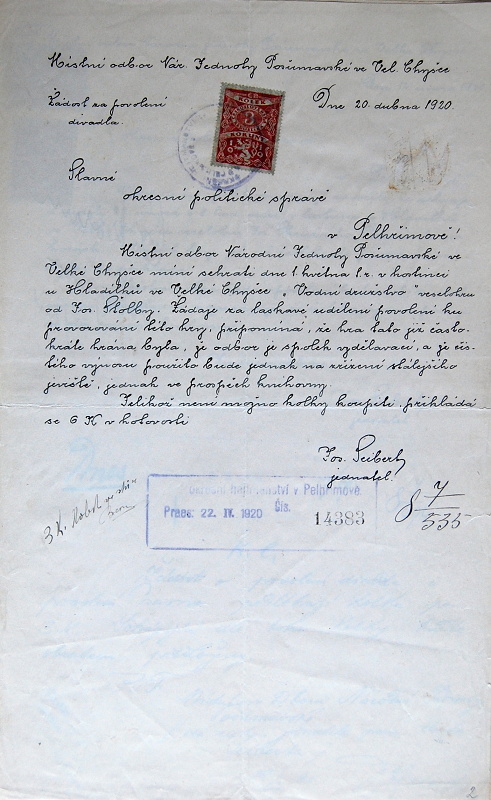 Místní odbor Nár. Jednoty Pošumavské ve Vel. Chyšce
Žádost za povolení
divadla.
Dne 20. dubna 1920.
KOLEK
3
KORUNY
Slavné
okresné politické správě
v Pelhřimově!
Místní odbor Národní Jednoty Pošumavské ve
Velké Chyšce míní sehráti dne 1. května t.r. v hostinci
u Hladílků ve Velké Chyšce „Vodní družstvo" veselohru
od Jos. Štolby. Žádaje za laskavé udělení povolení ku
provozování této hry, připomíná, že hra tato již často-
kráte hrána byla, je odbor je spolek vzdělávací, a že čis-
tého výnosu použito bude jednak na zřízení stálejšího
jeviště, jednak ve prospěch knihovny.
Jelikož není možno kolky koupiti, přikládá
se 6 K v hotovosti
Jos. Seibert
jednatel.
v Pelhřimově.
Praes: 22. IV. 1920
Čís.
14383
3 K.
8 7/535
2